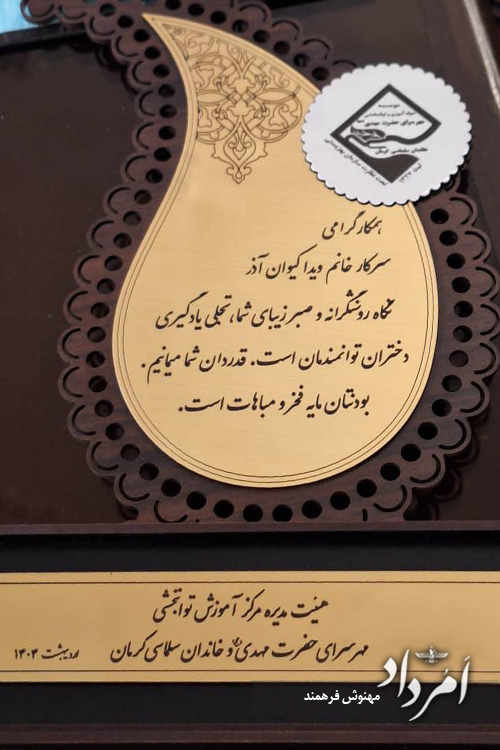 موسسه
مهر سرای حضرت مهدی
تحت نظارت سازمان بهزیستی
همکار گرامی
سرکار خانم ویدا کیوان آذر
نگاه روشنگرانه و صبر زیبای شما، تجلی یادگیری
دختران توانمندمان است. قدردان شما میمانیم.
بودنتان مایه فخر و مباهات است.
هیئت مدیره مرکز آموزش توانبخشی
مهر سرای حضرت مهدی و خاندان سلماسی کرمان
اردیبهشت ۱۴۰۴
اَمُرداد
مهنوش فرهمند